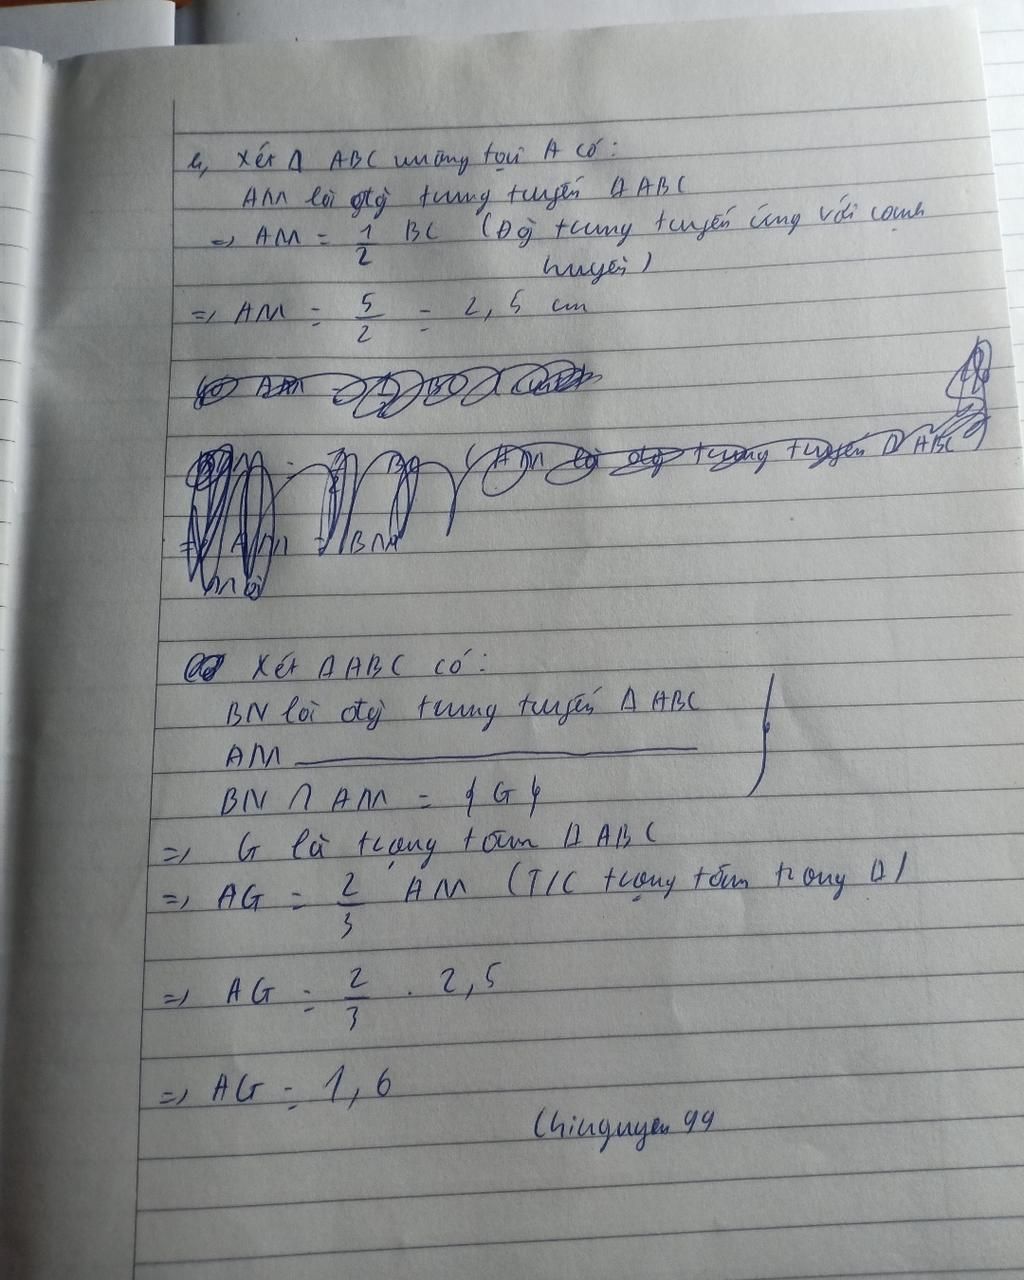 b, Xét Δ ABC vuông tại A có:
AM là đtộ trung tuyến Δ ABC
=> AM = 1/2 BC (Độ trung tuyến ứng với cạnh
huyền)
=> AM = 5/2 = 2,5 cm
AM là trung tuyến Δ ABC
=> AM = BM
Xét Δ ABC có:
BN là trung tuyến Δ ABC
AM
BN ∩ AM = {G}
=> G là trọng tâm Δ ABC
=> AG = 2/3 AM (T/C trọng tâm trong Δ)
=> AG = 2/3 . 2,5
=> AG = 1,6
Chinguyen 99